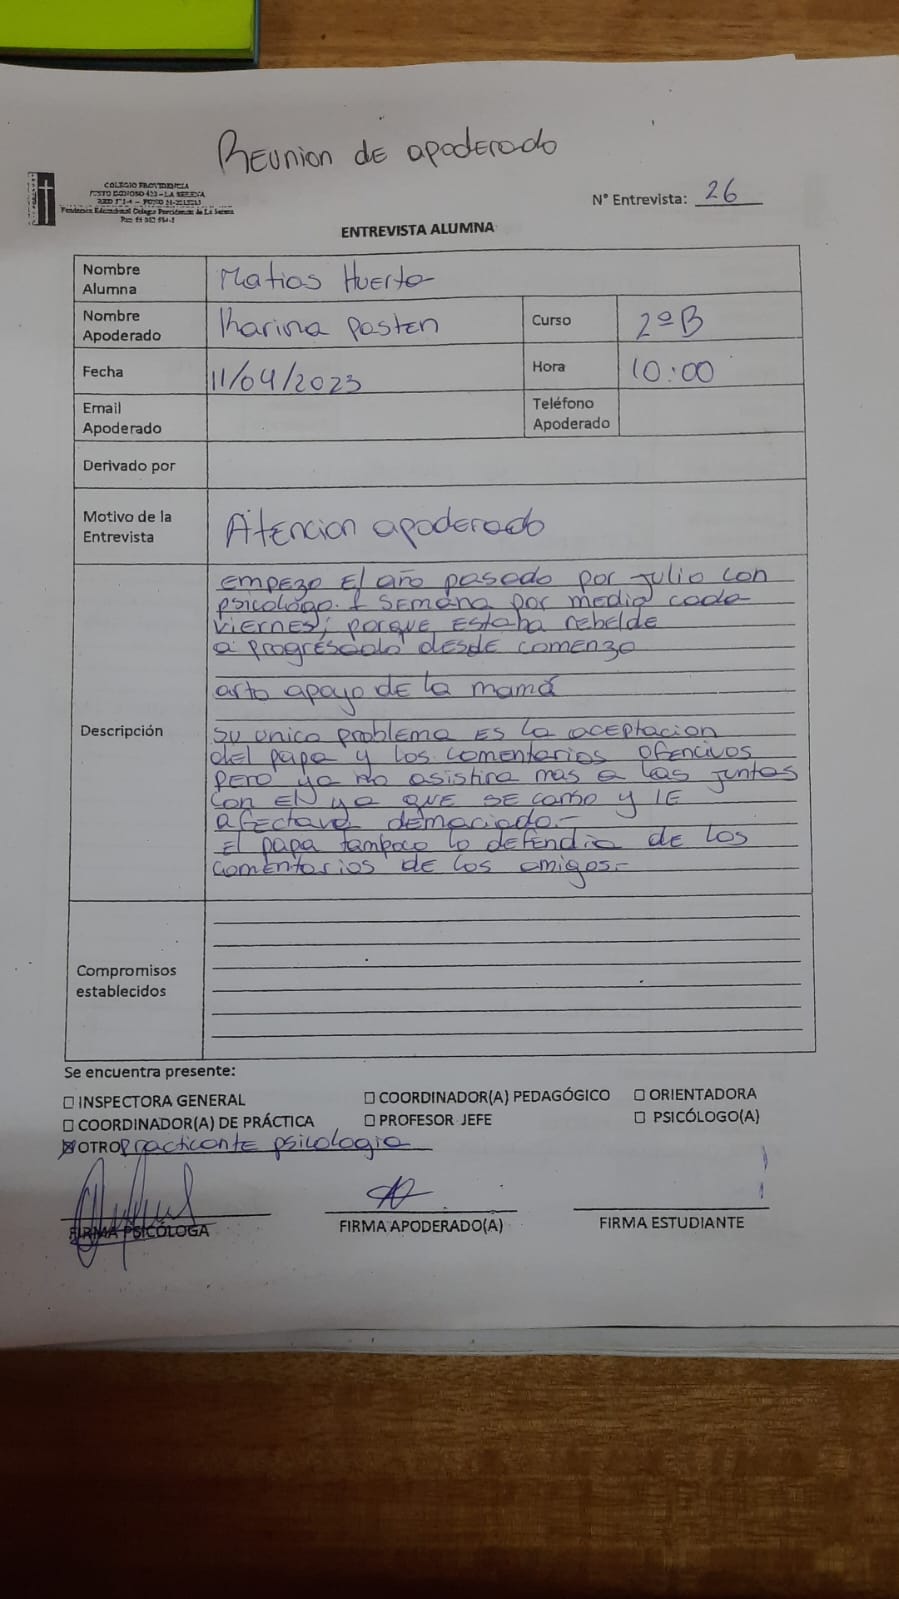 REUNION DE apoderado
COLEGIO PROVIDENCIA
JUSTO DONOSO 420 – LA SERENA
Fundación Educacional Colegio Providencia de La Serena
N° Entrevista: 26
ENTREVISTA ALUMNA
Nombre Alumna Matias Huerta
Nombre Apoderado Karina Pasten Curso 2º B
Fecha 11/04/2023 Hora 10:00
Email Apoderado Teléfono Apoderado
Derivado por
Motivo de la Entrevista Atencion apoderado
Descripción
EMPEZO El año pasado por Julio con
psicologo. 1 SEMANA por medio cada
viernes, porque ESTABA rebelde
a progresado DESDE COMENZO
arto apoyo DE la mamá
su unico problema ES la aceptacion
DEL papa y los comentarios ofencivos
PERO ya no asistira mas a las juntas
con El ya QUE SE canso y lE
afectava demaciado.-
El papa tampoco lo defendia de los
comentarios DE los amigos.-
Compromisos establecidos
Se encuentra presente:
☐ INSPECTORA GENERAL ☐ COORDINADOR(A) PEDAGÓGICO ☐ ORIENTADORA
☐ COORDINADOR(A) DE PRÁCTICA ☐ PROFESOR JEFE ☐ PSICÓLOGO(A)
☒ OTRO practicante psicologia
FIRMA PSICÓLOGA FIRMA APODERADO(A) FIRMA ESTUDIANTE